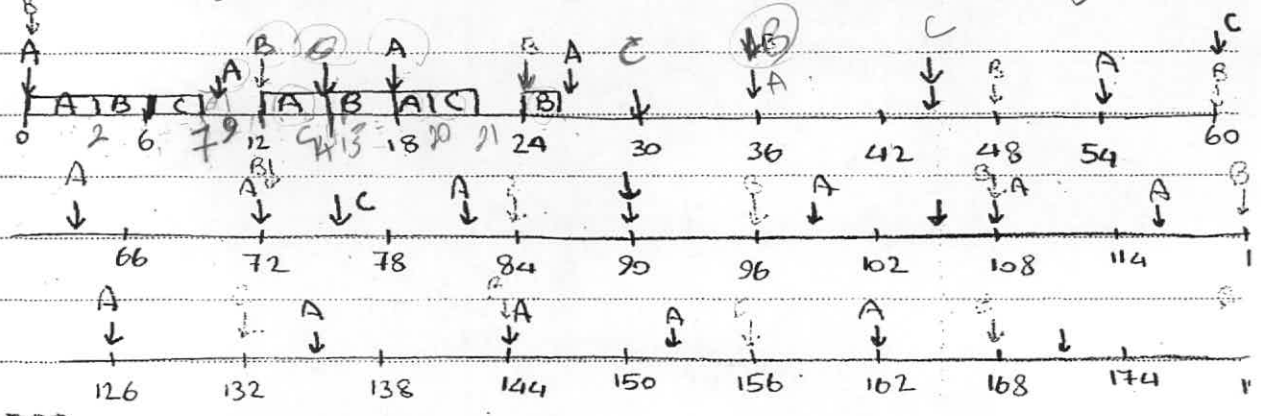 B
A B A B A C B C A C
A B C A A B A C B B A B
0 2 6 7 9 12 14 13 18 20 21 24 30 36 42 48 54 60
A A B C A B A B A A B
66 72 78 84 90 96 102 108 114 1
A A B A A A
126 132 138 144 150 156 162 168 174 1